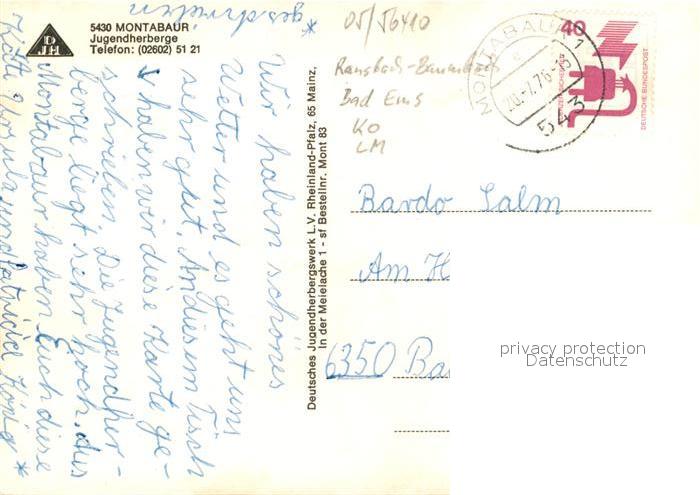 5430 MONTABAUR
Jugendherberge
Telefon: (02602) 51 21
DJH
Wir haben schönes
Wetter und es geht uns
sehr gut. An diesem Tisch
haben wir diese Karte ge-
schrieben. Die Jugendher-
berge liegt sehr hoch. Aus
Montabaur haben Euch diese
Ursula und Patricia König *
* geschrieben
Deutsches Jugendherbergswerk L.V. Rheinland-Pfalz, 65 Mainz,
In der Meielache 1 - sf Bestellnr. Mont 83
05/56410
Ransbach-Baumbach
Bad Ems
KO
LM
MONTABAUR 1
20.-7.76
543
40
DEUTSCHE BUNDESPOST
Bardo Salm
Am H
6350 Ba
privacy protection
Datenschutz